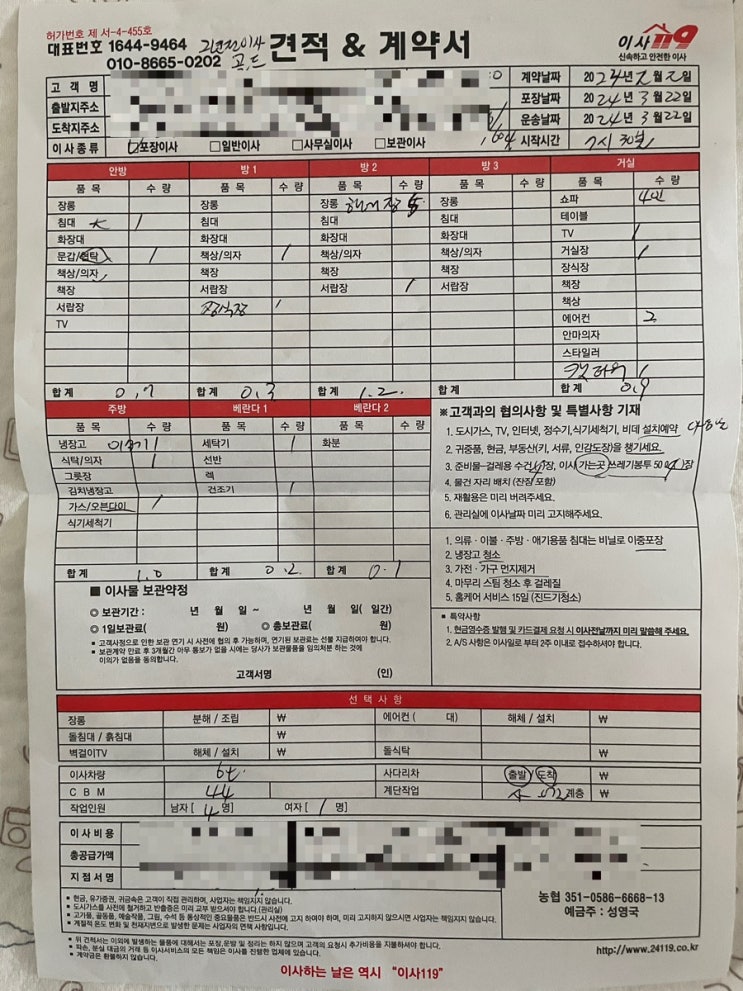 허가번호 제 서-4-455호
대표번호 1644-9464
010-8665-0202
견적 & 계약서
이사119
신속하고 안전한 이사
고 객 명
계약날짜 2024년 2월 2일
출발지주소
포장날짜 2024년 3월 22일
도착지주소
운송날짜 2024년 3월 22일
이사종류 □포장이사 □일반이사 □사무실이사 □보관이사
시작시간 7시 30분
안방 방 1 방 2 방 3 거실
품 목 수 량 품 목 수 량 품 목 수 량 품 목 수 량 품 목 수 량
장롱 장롱 장롱 장롱 쇼파 4인
침대 1 침대 침대 침대 테이블
화장대 화장대 화장대 화장대 TV 1
문갑/협탁 1 책상/의자 1 책상/의자 책상/의자 거실장 1
책상/의자 책장 책장 책장 장식장
책장 서랍장 서랍장 1 서랍장 책장
서랍장 장식장 1 책상
TV 에어컨 2
안마의자
스타일러
캣타워 1
합 계 0.7 합 계 0.3 합 계 1.2 합 계 합 계 0.9
주방 베란다 1 베란다 2
품 목 수 량 품 목 수 량 품 목 수 량
냉장고 1 세탁기 1 화분
식탁/의자 1 선반
그릇장 렉
김치냉장고 건조기 1
가스/오븐다이 1
식기세척기
합 계 1.0 합 계 0.2 합 계 0.1
※고객과의 협의사항 및 특별사항 기재
1. 도시가스, TV, 인터넷, 정수기,식기세척기, 비데 설치예약
2. 귀중품, 현금, 부동산(키, 서류, 인감도장)을 챙기세요.
3. 준비물-걸레용 수건 장, 이사 가는곳 쓰레기봉투 50 장
4. 물건 자리 배치 (잔짐 포함)
5. 재활용은 미리 버려주세요.
6. 관리실에 이사날짜 미리 고지해주세요.
1. 의류 · 이불 · 주방 · 애기용품 침대는 비닐로 이중포장
2. 냉장고 청소
3. 가전 · 가구 먼지제거
4. 마무리 스팀 청소 후 걸레질
5. 홈케어 서비스 15일 (진드기청소)
■ 특약사항
1. 현금영수증 발행 및 카드결제 요청 시 이사전날까지 미리 말씀해 주세요.
2. A/S 사항은 이사일로 부터 2주 이내로 접수하셔야 합니다.
■ 이사물 보관약정
◎ 보관기간 : 년 월 일 ~ 년 월 일( 일간)
◎ 1일보관료( 원) ◎ 총보관료( 원)
■ 고객사정으로 인한 보관 연기 시 사전에 협의 후 가능하며, 연기된 보관료는 선불 지급하여야 합니다.
■ 보관계약 만료 후 3개월간 아무 통보가 없을 시에는 당사가 보관물품을 임의처분 하는 것에
이의가 없음을 동의합니다.
고객서명 (인)
선 택 사 항
장롱 분해 / 조립 ₩ 에어컨 ( 대) 해체 / 설치 ₩
돌침대 / 흙침대 ₩
벽걸이TV 해체 / 설치 ₩ 돌식탁 ₩
이사차량 6t 사다리차 출발 / 도착 ₩
C B M 44 계단작업 계층 ₩
작업인원 남자 [ 4 명] 여자 [ 1 명]
이 사 비 용
총공급가액
지 점 서 명
■ 현금, 유가증권, 귀금속은 고객이 직접 관리하며, 사업자는 책임지지 않습니다.
■ 도시가스를 사전에 철거하고 반출증은 미리 교부 받으셔야 합니다.(관리실)
■ 고가품, 골동품, 예술작품, 그림, 수석 등 통상적인 중요물품은 반드시 사전에 고지 하여야 하며, 미리 고지하지 않으시면 사업자는 책임지지 않습니다.
■ 계절적 온도 변화 및 천재지변으로 발생한 문제는 사업자의 면책 사항입니다.
농협 351-0586-6668-13
예금주 : 성영국
■ 뒤 견적서는 이외에 발생하는 물품에 대해서는 포장,운반 및 정리는 하지 않으며 고객의 요청시 추가비용을 지불하셔야 합니다.
■ 파손, 분실 대금의 거래 등 이사서비스의 모든 책임은 이사를 진행한 업체에 있습니다.
■ 계약금은 환불하지 않습니다.
http://www.24119.co.kr
이사하는 날은 역시 “이사119”